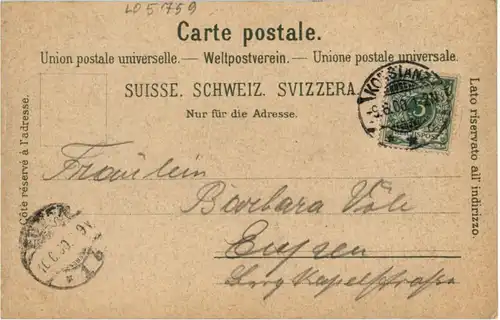 LO5759
Carte postale.
Union postale universelle. — Weltpostverein. — Unione postale universale.
SUISSE. SCHWEIZ. SVIZZERA
Nur für die Adresse.
Côté réservé à l'adresse.
Lato riservato all' indirizzo.
KONSTANZ
5
Fräulein
Barbara
Eupen
EUPEN